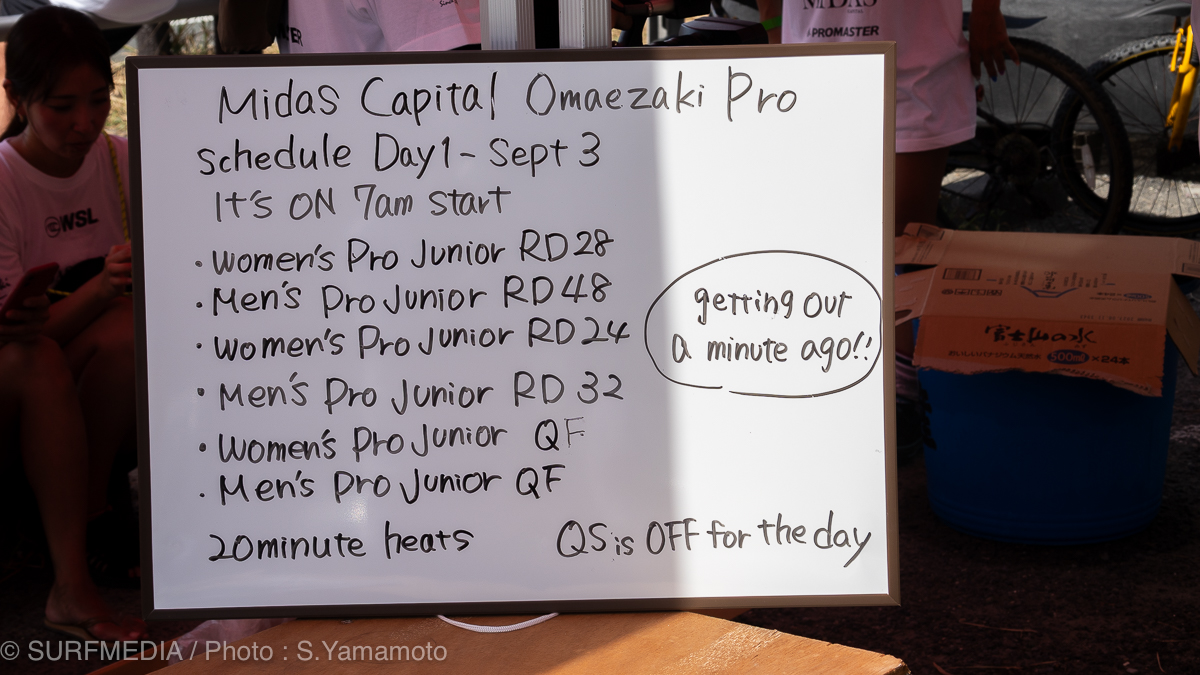 MIDAS
APROMASTER
MASTER
WSL
Midas Capital Omaezaki Pro
Schedule Day1 - Sept 3
It's ON 7am start
• Women's Pro Junior RD28
• Men's Pro Junior RD48
• Women's Pro Junior RD24
• Men's Pro Junior RD 32
• Women's Pro Junior QF
• Men's Pro Junior QF
getting out
a minute ago!!
20minute heats
QS is OFF for the day
富士山の水
おいしいバナジウム天然水 500ml ×24本
© SURFMEDIA / Photo : S.Yamamoto